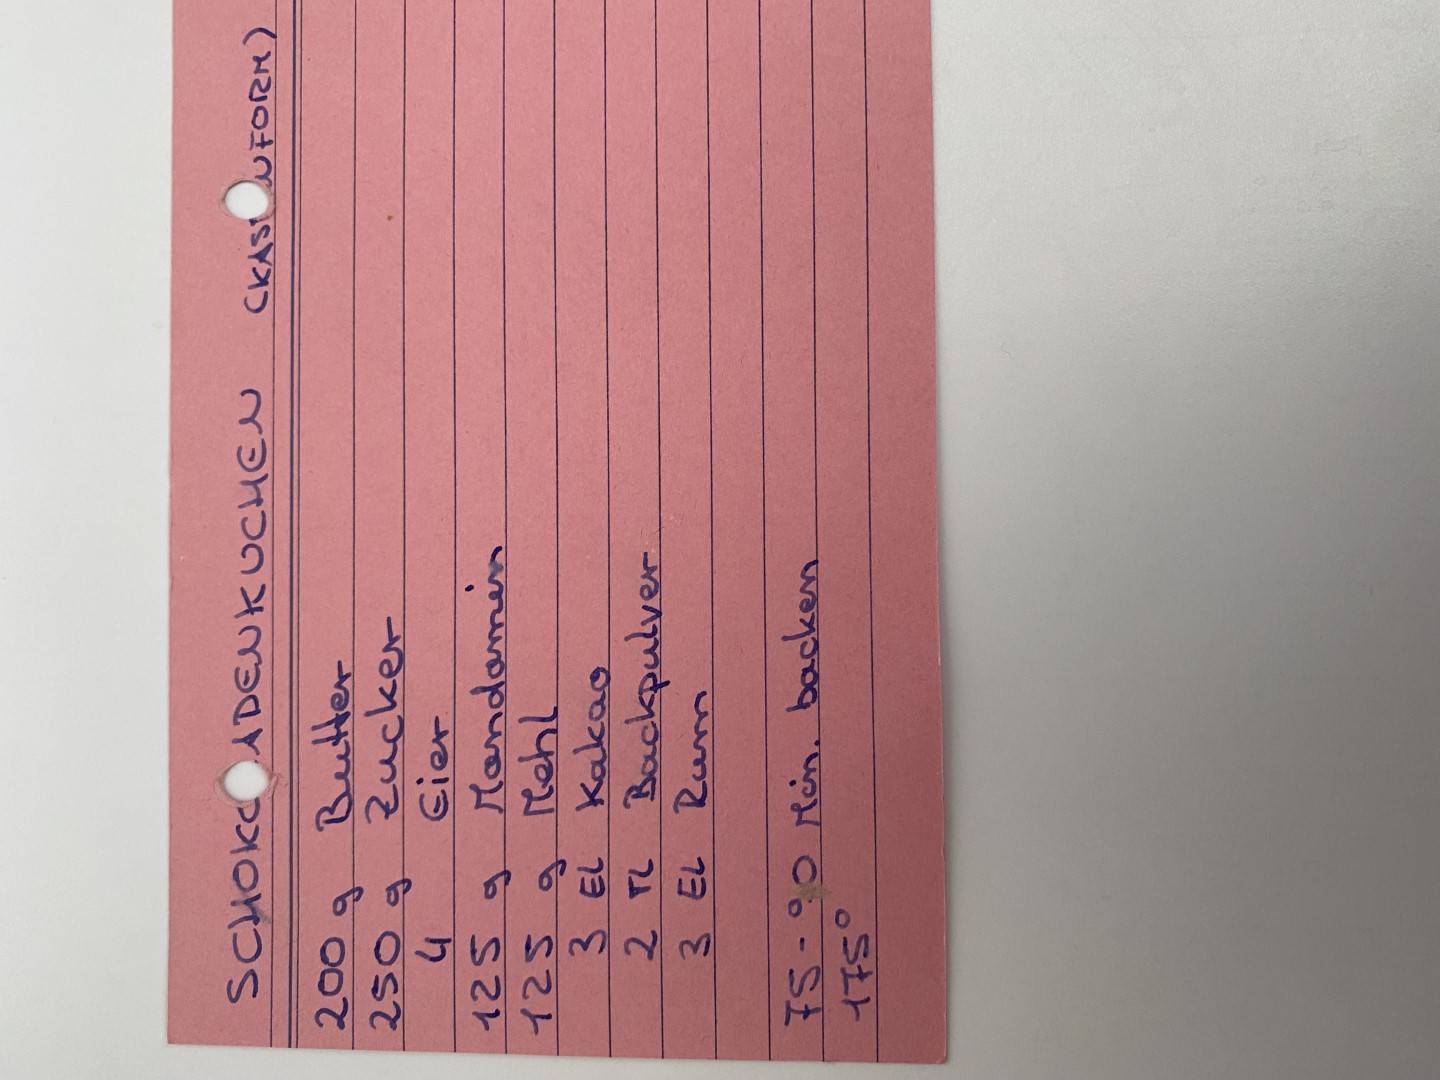 SCHOKOLADENKUCHEN (KASTENFORM)
200 g Butter
250 g Zucker
4 Eier
125 g Mondamin
125 g Mehl
3 EL Kakao
2 TL Backpulver
3 EL Rum
75-90 Min. backen
175°